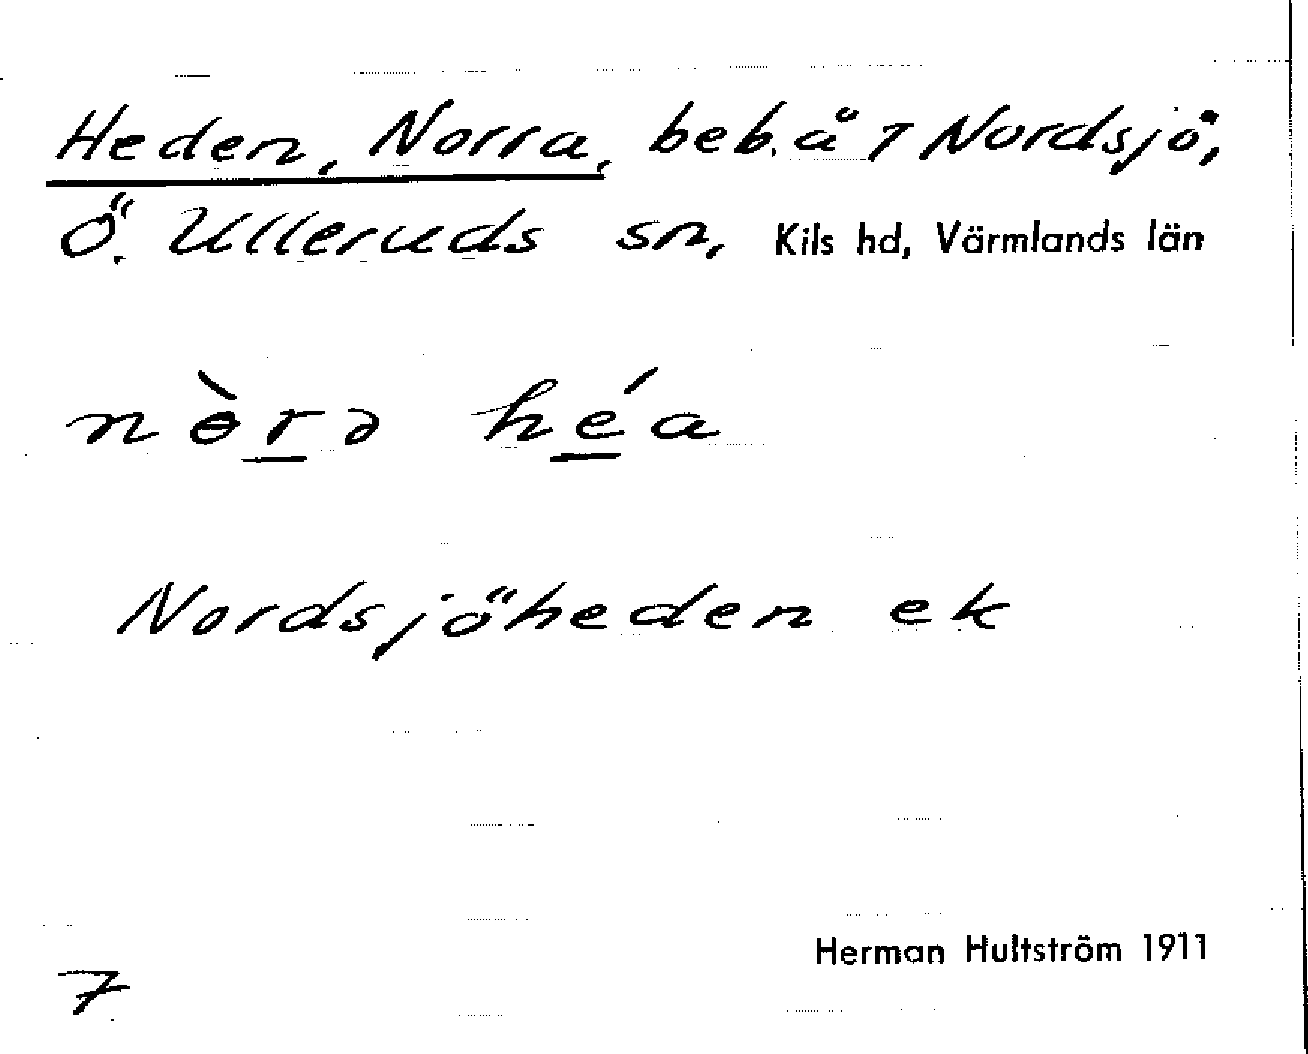 Heden, Norra, beb. å 7 Nordsjö,
Ö. Ulleruds sn, Kils hd, Värmlands län
nɵ̀rə héa
Nordsjöheden ek
Herman Hultström 1911
7